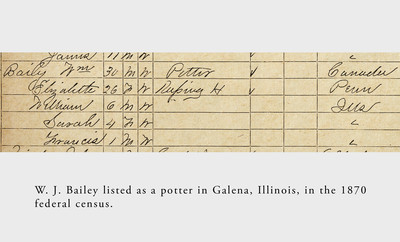 James 11 M W "
Baily Wm 30 M W Potter Canada
Elizabette 26 F W Keeping H Penn
William 6 M W Ills
Sarah 4 F W "
Francis 1 M W "
W. J. Bailey listed as a potter in Galena, Illinois, in the 1870
federal census.